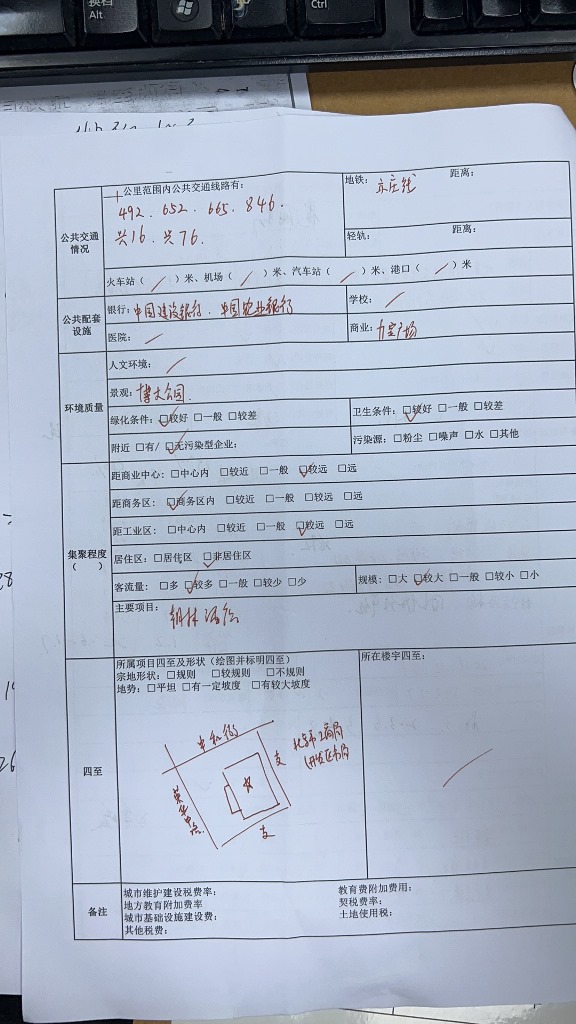 换档
Alt
Ctrl
公共交通
情况
十公里范围内公共交通线路有：
492．652．665．846．
兴16．兴76．
地铁：亦庄线 距离：
轻轨： 距离：
火车站（ / ）米、机场（ / ）米、汽车站（ / ）米、港口（ / ）米
公共配套
设施
银行：中国建设银行．中国农业银行
学校：/
医院：/
商业：力宝广场
环境质量
人文环境：/
景观：博大公园．
绿化条件：☑较好 □一般 □较差
卫生条件：☑较好 □一般 □较差
附近 □有/ ☑无污染型企业：
污染源：□粉尘 □噪声 □水 □其他
集聚程度
（ ）
距商业中心：□中心内 □较近 □一般 ☑较远 □远
距商务区：☑商务区内 □较近 □一般 □较远 □远
距工业区：□中心内 □较近 □一般 ☑较远 □远
居住区：□居住区 ☑非居住区
客流量：□多 ☑较多 □一般 □较少 □少
规模：□大 ☑较大 □一般 □较小 □小
主要项目：
四至
所属项目四至及形状（绘图并标明四至）
宗地形状：□规则 □较规则 □不规则
地势：□平坦 □有一定坡度 □有较大坡度
中和街
支
北京市工商局
荣华中路
支
所在楼宇四至：
备注
城市维护建设税费率：
教育费附加费用：
地方教育附加费率
契税费率：
城市基础设施建设费：
土地使用税：
其他税费：
28
26